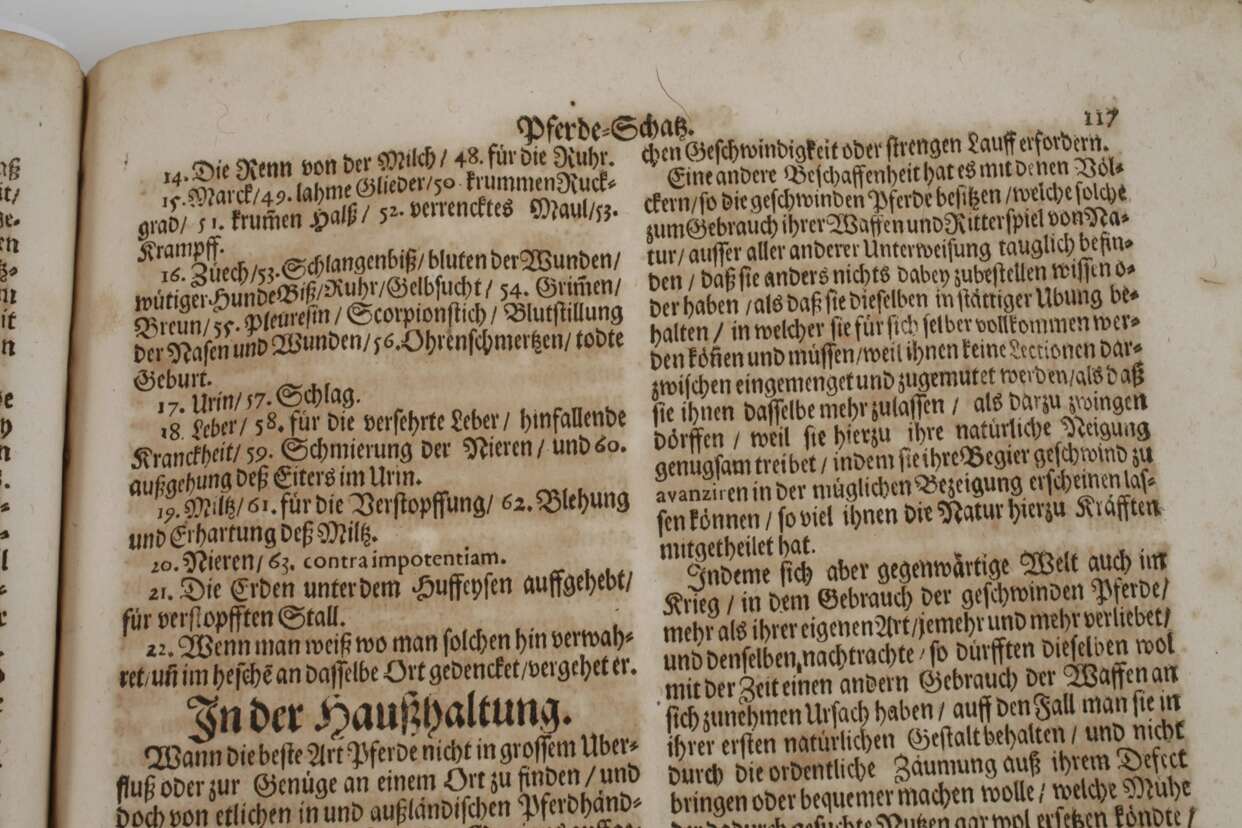 Pferde-Schatz.
117
14. Die Renn von der Milch / 48. für die Ruhr.
15. Marck / 49. lahme Glieder / 50 krummen Ruck-
grad / 51. krum̃en Halß / 52. verrencktes Maul / 53.
Krampff.
16. Züech / 53. Schlangenbiß / bluten der Wunden /
wütiger Hunde Biß / Ruhr / Gelbsucht / 54. Grim̃en /
Breun / 55. Pleuresin / Scorpionstich / Blutstillung
der Nasen und Wunden / 56. Ohrenschmertzen / todte
Geburt.
17. Urin / 57. Schlag.
18. Leber / 58. für die versehrte Leber / hinfallende
Kranckheit / 59. Schmierung der Nieren / und 60.
außgehung deß Eiters im Urin.
19. Miltz / 61. für die Verstopffung / 62. Blehung
und Erhartung deß Miltz.
20. Nieren / 63. contra impotentiam.
21. Die Erden unter dem Huffeysen auffgehebt /
für verstopfften Stall.
22. Wenn man weiß wo man solchen hin verwah-
ret / uñ im heschẽ an dasselbe Ort gedencket / vergehet er.
In der Haußhaltung.
Wann die beste Art Pferde nicht in grossem Uber-
fluß oder zur Genüge an einem Ort zu finden / und
doch von etlichen in und außländischen Pferdhänd-
chen Geschwindigkeit oder strengen Lauff erfordern.
Eine andere Beschaffenheit hat es mit denen Völ-
ckern / so die geschwinden Pferde besitzen / welche solche
zum Gebrauch ihrer Waffen und Ritterspiel von Na-
tur / ausser aller anderer Unterweisung tauglich befin-
den / daß sie anders nichts dabey zubestellen wissen o-
der haben / als daß sie dieselben in stättiger Ubung be-
halten / in welcher sie für sich selber vollkommen wer-
den kön̄en und müssen / weil ihnen keine Lectionen dar-
zwischen eingemenget und zugemutet werden / als daß
sie ihnen dasselbe mehr zulassen / als darzu zwingen
dörffen / weil sie hierzu ihre natürliche Neigung
genugsam treibet / indem sie ihre Begier geschwind zu
avanziren in der müglichen Bezeigung erscheinen las-
sen können / so viel ihnen die Natur hierzu Kräfften
mitgetheilet hat.
Indeme sich aber gegenwärtige Welt auch im
Krieg / in dem Gebrauch der geschwinden Pferde /
mehr als ihrer eigenen Art / jemehr und mehr verliebet /
und denselben nachtrachte / so dürfften dieselben wol
mit der Zeit einen andern Gebrauch der Waffen an
sich zunehmen Ursach haben / auff den Fall man sie in
ihrer ersten natürlichen Gestalt behalten / und nicht
durch die ordentliche Zäumung auß ihrem Defect
bringen oder bequemer machen wolle / welche Mühe
der dadurch gesuchte Nutzen gar wol ersetzen köndte /